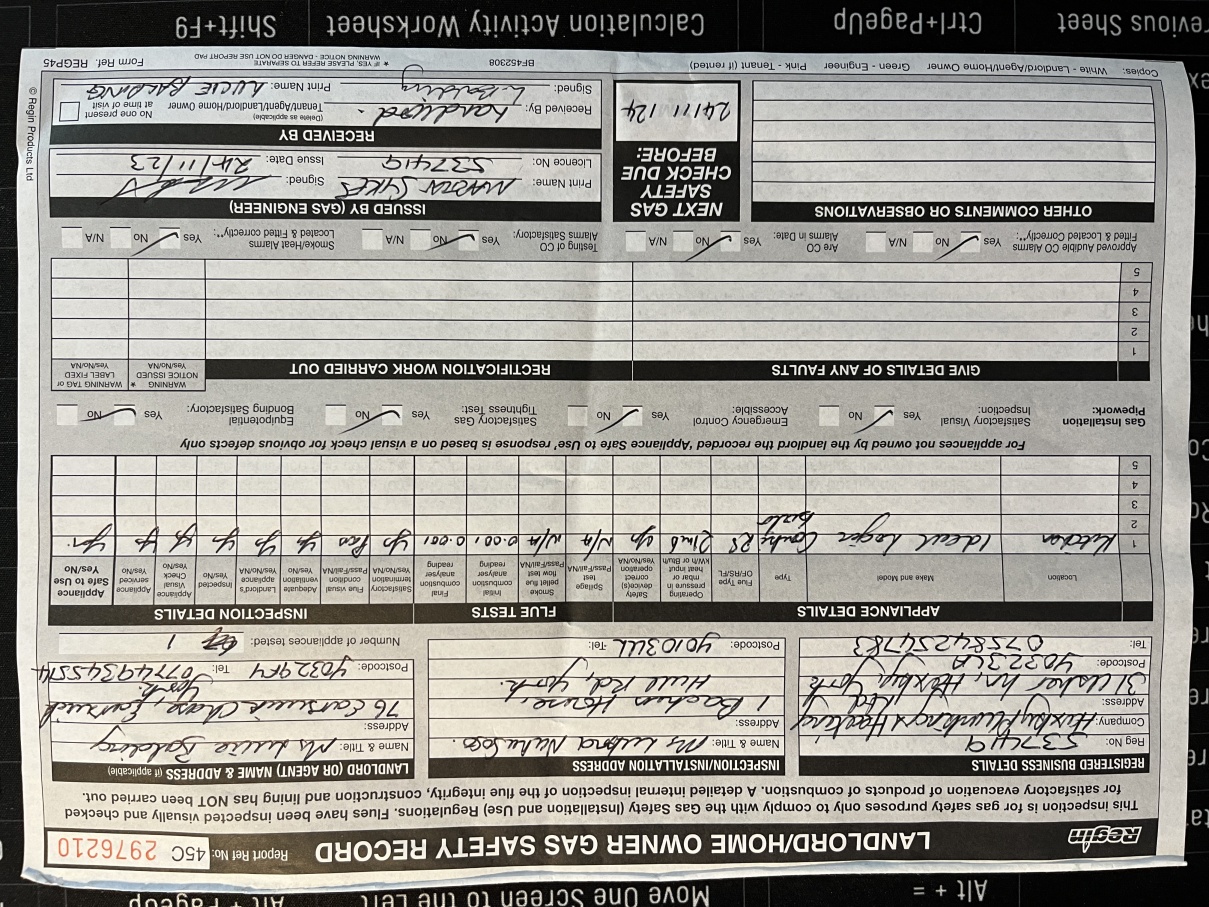 Regin
LANDLORD/HOME OWNER GAS SAFETY RECORD
Report Ref No: 45C 2976210
This inspection is for gas safety purposes only to comply with the Gas Safety (Installation and Use) Regulations. Flues have been inspected visually and checked
for satisfactory evacuation of products of combustion. A detailed internal inspection of the flue integrity, construction and lining has NOT been carried out.
REGISTERED BUSINESS DETAILS
Reg No: 537419
Company: Huxby Plumbing & Heating
Address: Ltd
31 Usher Ln, Haxby, York
Postcode: YO32 3LA
Tel: 07584254783
INSPECTION/INSTALLATION ADDRESS
Name & Title: Ms
Address: 1 Bachun House,
Hull Rd, York.
Postcode: YO10 3LL Tel:
LANDLORD (OR AGENT) NAME & ADDRESS (if applicable)
Name & Title: Ms Lucie Balding
Address:
76 Earswick Chase, Earswick
York.
Postcode: YO32 9FY Tel: 07749345514
Number of appliances tested: 1
APPLIANCE DETAILS
FLUE TESTS
INSPECTION DETAILS
Location
Make and Model
Type
Flue Type OF/RS/FL
Operating pressure in mbar or heat input kW/h or Btu/h
Safety device(s) correct operation Yes/No/NA
Spillage test Pass/Fail/NA
Smoke pellet flue flow test Pass/Fail/NA
Initial combustion analyser reading
Final combustion analyser reading
Satisfactory termination Yes/No/NA
Flue visual condition Pass/Fail/NA
Adequate ventilation Yes/No
Landlord's appliance Yes/No/NA
Inspected Yes/No
Appliance Visual Check Yes/No
Appliance serviced Yes/No
Appliance Safe to Use Yes/No
1 Kitchen Ideal Logic Combi RS 21mb yes N/A N/A 0.001 0.001 yes Pass yes yes yes yes yes yes
2
3
4
5
For appliances not owned by the landlord the recorded 'Appliance Safe to Use' response is based on a visual check for obvious defects only
Gas Installation Pipework: Satisfactory Visual Inspection: Yes No Emergency Control Accessible: Yes No Satisfactory Gas Tightness Test: Yes No Equipotential Bonding Satisfactory: Yes No
GIVE DETAILS OF ANY FAULTS
RECTIFICATION WORK CARRIED OUT
WARNING NOTICE ISSUED * Yes/No/NA
WARNING TAG or LABEL FIXED Yes/No/NA
1
2
3
4
5
Approved Audible CO Alarms Fitted & Located Correctly**: Yes No N/A Are CO Alarms in Date: Yes No N/A Testing of CO Alarms Satisfactory: Yes No N/A Smoke/Heat Alarms Located & Fitted correctly**: Yes No N/A
OTHER COMMENTS OR OBSERVATIONS
NEXT GAS
SAFETY
CHECK DUE
BEFORE:
24/11/24
ISSUED BY (GAS ENGINEER)
Print Name: MARTIN SYKES Signed:
Licence No: 537419 Issue Date: 24/11/23
RECEIVED BY
Received By: Landlord Tenant/Agent/Landlord/Home Owner (Delete as applicable)
No one present at time of visit
Signed: L. Balding Print Name: LUCIE BALDING
Copies: White - Landlord/Agent/Home Owner Green - Engineer Pink - Tenant (if rented)
BF452308
* IF YES, PLEASE REFER TO SEPARATE
WARNING NOTICE - DANGER DO NOT USE REPORT PAD
Form Ref. REGP45
© Regin Products Ltd
Shift+F9
Calculation Activity Worksheet
Ctrl+PageUp
evious Sheet
Alt + PageUp
Move One Screen to the Left
Alt + =